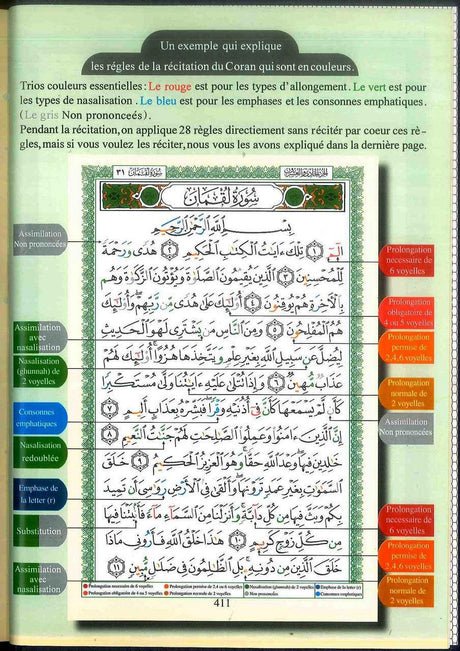 Un exemple qui explique
les régles de la récitation du Coran qui sont en couleurs.
Trios couleurs essentielles: Le rouge est pour les types d'allongement. Le vert est pour
les types de nasalisation. Le bleu est pour les emphases et les consonnes emphatiques.
(Le gris Non prononceés).
Pendant la récitation, on applique 28 règles directement sans réciter par coeur ces rè-
gles, mais si vous voulez les réciter, nous vous les avons expliqué dans la dernière page.
سورة لقمان ٣١
الجزء الحادي والعشرون
سُورَةُ لُقْمَان
بِسْمِ اللَّهِ الرَّحْمَٰنِ الرَّحِيمِ
الٓمٓ ١ تِلْكَ ءَايَٰتُ الْكِتَٰبِ الْحَكِيمِ ٢ هُدًى وَرَحْمَةً
لِّلْمُحْسِنِينَ ٣ الَّذِينَ يُقِيمُونَ الصَّلَوٰةَ وَيُؤْتُونَ الزَّكَوٰةَ وَهُم
بِالْءَاخِرَةِ هُمْ يُوقِنُونَ ٤ أُو۟لَٰٓئِكَ عَلَىٰ هُدًى مِّن رَّبِّهِمْ وَأُو۟لَٰٓئِكَ
هُمُ الْمُفْلِحُونَ ٥ وَمِنَ النَّاسِ مَن يَشْتَرِى لَهْوَ الْحَدِيثِ
لِيُضِلَّ عَن سَبِيلِ اللَّهِ بِغَيْرِ عِلْمٍ وَيَتَّخِذَهَا هُزُوًا أُو۟لَٰٓئِكَ لَهُمْ
عَذَابٌ مُّهِينٌ ٦ وَإِذَا تُتْلَىٰ عَلَيْهِ ءَايَٰتُنَا وَلَّىٰ مُسْتَكْبِرًا
كَأَن لَّمْ يَسْمَعْهَا كَأَنَّ فِىٓ أُذُنَيْهِ وَقْرًا فَبَشِّرْهُ بِعَذَابٍ أَلِيمٍ ٧
إِنَّ الَّذِينَ ءَامَنُوا۟ وَعَمِلُوا۟ الصَّٰلِحَٰتِ لَهُمْ جَنَّٰتُ النَّعِيمِ ٨
خَٰلِدِينَ فِيهَا وَعْدَ اللَّهِ حَقًّا وَهُوَ الْعَزِيزُ الْحَكِيمُ ٩ خَلَقَ
السَّمَٰوَٰتِ بِغَيْرِ عَمَدٍ تَرَوْنَهَا وَأَلْقَىٰ فِى الْأَرْضِ رَوَٰسِىَ أَن تَمِيدَ
بِكُمْ وَبَثَّ فِيهَا مِن كُلِّ دَآبَّةٍ وَأَنزَلْنَا مِنَ السَّمَآءِ مَآءً فَأَنۢبَتْنَا فِيهَا
مِن كُلِّ زَوْجٍ كَرِيمٍ ١٠ هَٰذَا خَلْقُ اللَّهِ فَأَرُونِى مَاذَا
خَلَقَ الَّذِينَ مِن دُونِهِ بَلِ الظَّٰلِمُونَ فِى ضَلَٰلٍ مُّبِينٍ ١١
Assimilation
Non prononcées
Assimilation
avec
nasalisation
Nasalisation
(ghunnah) de 2
voyelles
Consonnes
emphatiques
Nasalisation
redoublée
Emphase de
la letter (r)
Substitution
Assimilation
avec
nasalisation
Prolongation
necessaire de
6 voyelles
Prolongation
obligatoire de
4 ou 5 voyelles
Prolongation
permise de
2,4,6 voyelles
Prolongation
normale de
2 voyelles
Assimilation
Non prononcées
Prolongation
necessaire de
6 voyelles
Prolongation
permise de
2,4,6 voyelles
Prolongation
normale de
2 voyelles
Prolongation necessaire de 6 voyelles
Prolongation permise de 2,4 ou 6 voyelles
Nasalisation (ghunnah) de 2 voyelles
Emphase de la letter (r)
Prolongation obligatoire de 4 ou 5 voyelles
Prolongation normale de 2 voyelles
Non prononcées
Consonnes emphatiques
411